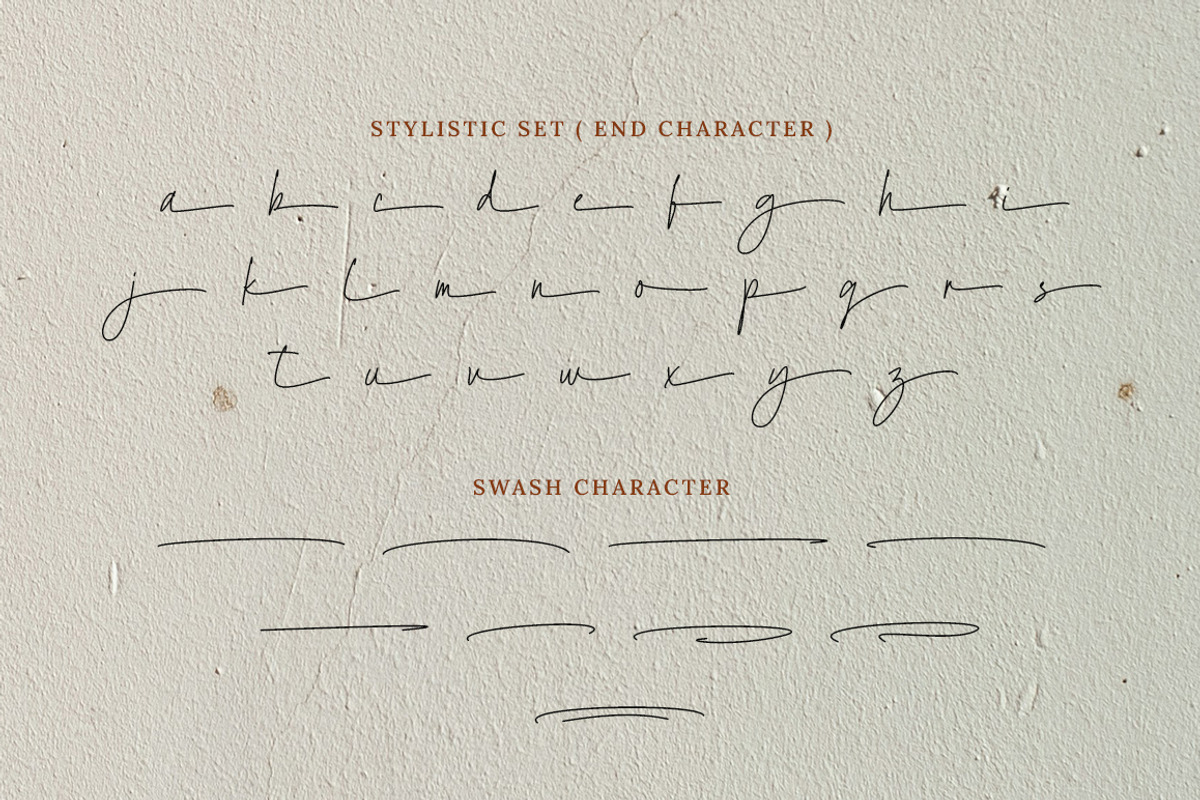 STYLISTIC SET ( END CHARACTER )
a b c d e f g h i
j k l m n o p q r s
t u v w x y z
SWASH CHARACTER